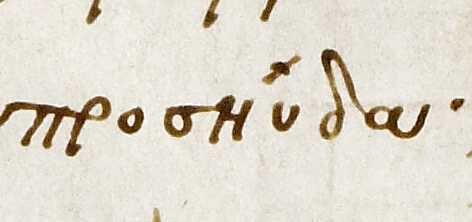 προσηύδα·